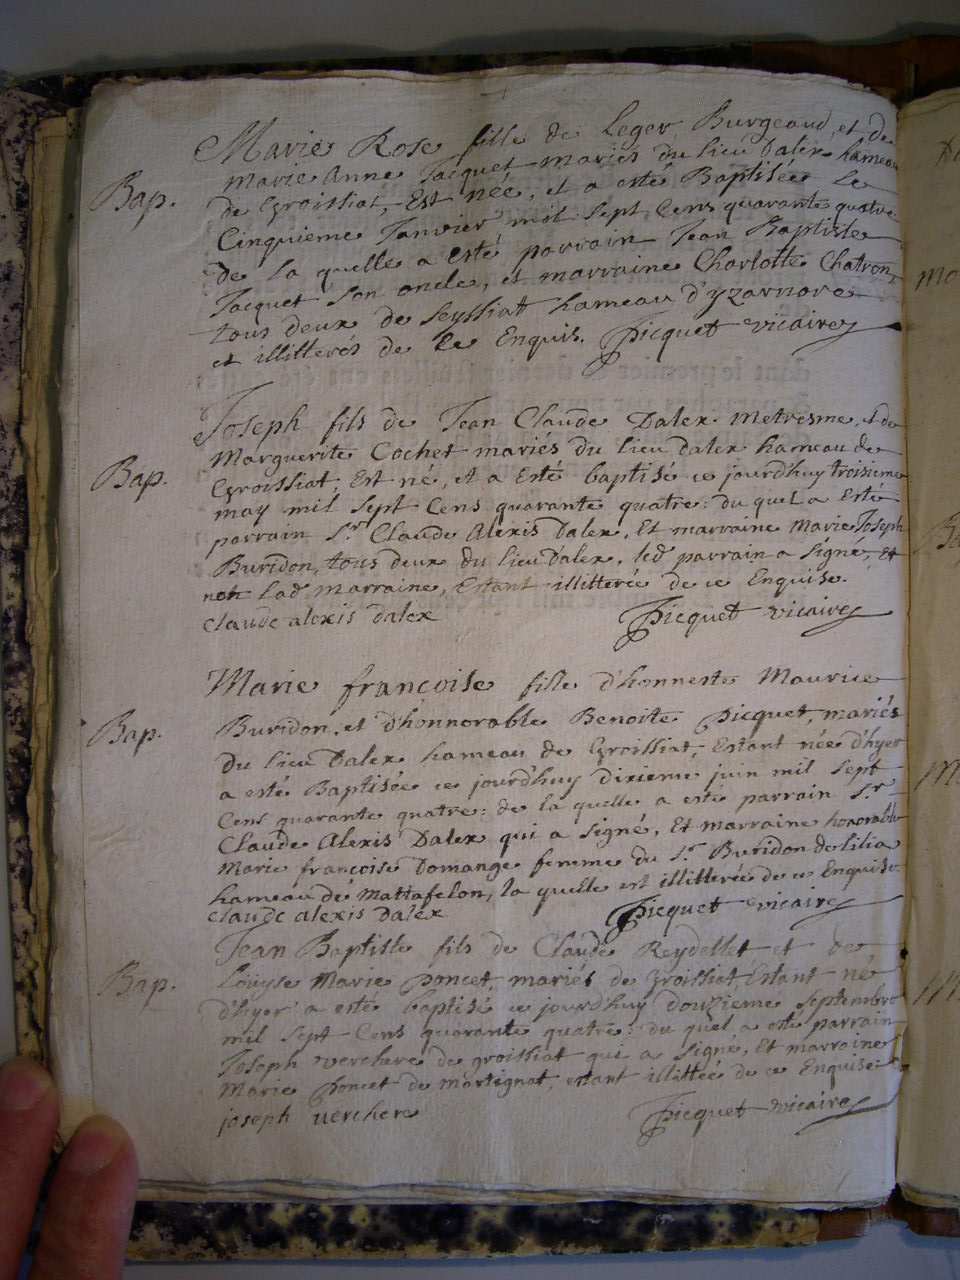 Marie Rose fille de Leger Burgeaud, et de
Bap. Marie Anne Jacquet mariés du lieu Dalex hameau
de Groissiat, Est née, et a esté Baptisée le
Cinquieme Janvier mil sept Cens quarante quatre
de la quelle a esté parrain Jean Baptiste
Jacquet son oncle, et marraine Charlotte Chatron
tous deux de Seyssiat hameau d'yzarnore
et illitterés de ce Enquis. Picquet vicaire
Joseph fils de Jean Claude Dalex Metresme, et de
Bap. Marguerite Cochet mariés du lieu Dalex hameau de
Groissiat, Est né, et a Esté baptisé ce jourdhuy troisieme
may mil sept Cens quarante quatre: du quel a Esté
parrain Sr Claude Alexis Dalex, Et marraine Marie Joseph
Buridon, tous deux du lieu Dalex, led parrain a signé, Et
non lad marraine, Estant illitterée de ce Enquise.
Claude alexis Dalex Picquet vicaire
Marie françoise fille d'honneste Maurice
Bap. Buridon, et d'honnorable Benoite Picquet, mariés
du lieu Dalex hameau de Groissiat, Estant née d'hyer
a esté Baptisée ce jourd'huy dixieme juin mil sept
Cens quarante quatre: de la quelle a esté parrain Sr
Claude Alexis Dalex qui a signé, Et marraine honorable
Marie françoise Domange femme du Sr Buridon de lilia
hameau de Mattafelon, la quelle est illitterée de ce Enquise
Claude alexis Dalex Picquet vicaire
Jean Baptiste fils de Claude Reydellet et de
Bap. Loüyse Marie Poncet, mariés de Groissiat, Estant né
d'hyer a esté baptisé ce jourd'huy douzieme septembre
mil sept Cens quarante quatre: du quel a esté parrain
Joseph Verchere de groissiat qui a signé, Et marraine
Marie Poncet de martignat, estant illittée de ce Enquise
joseph verchere Picquet vicaire